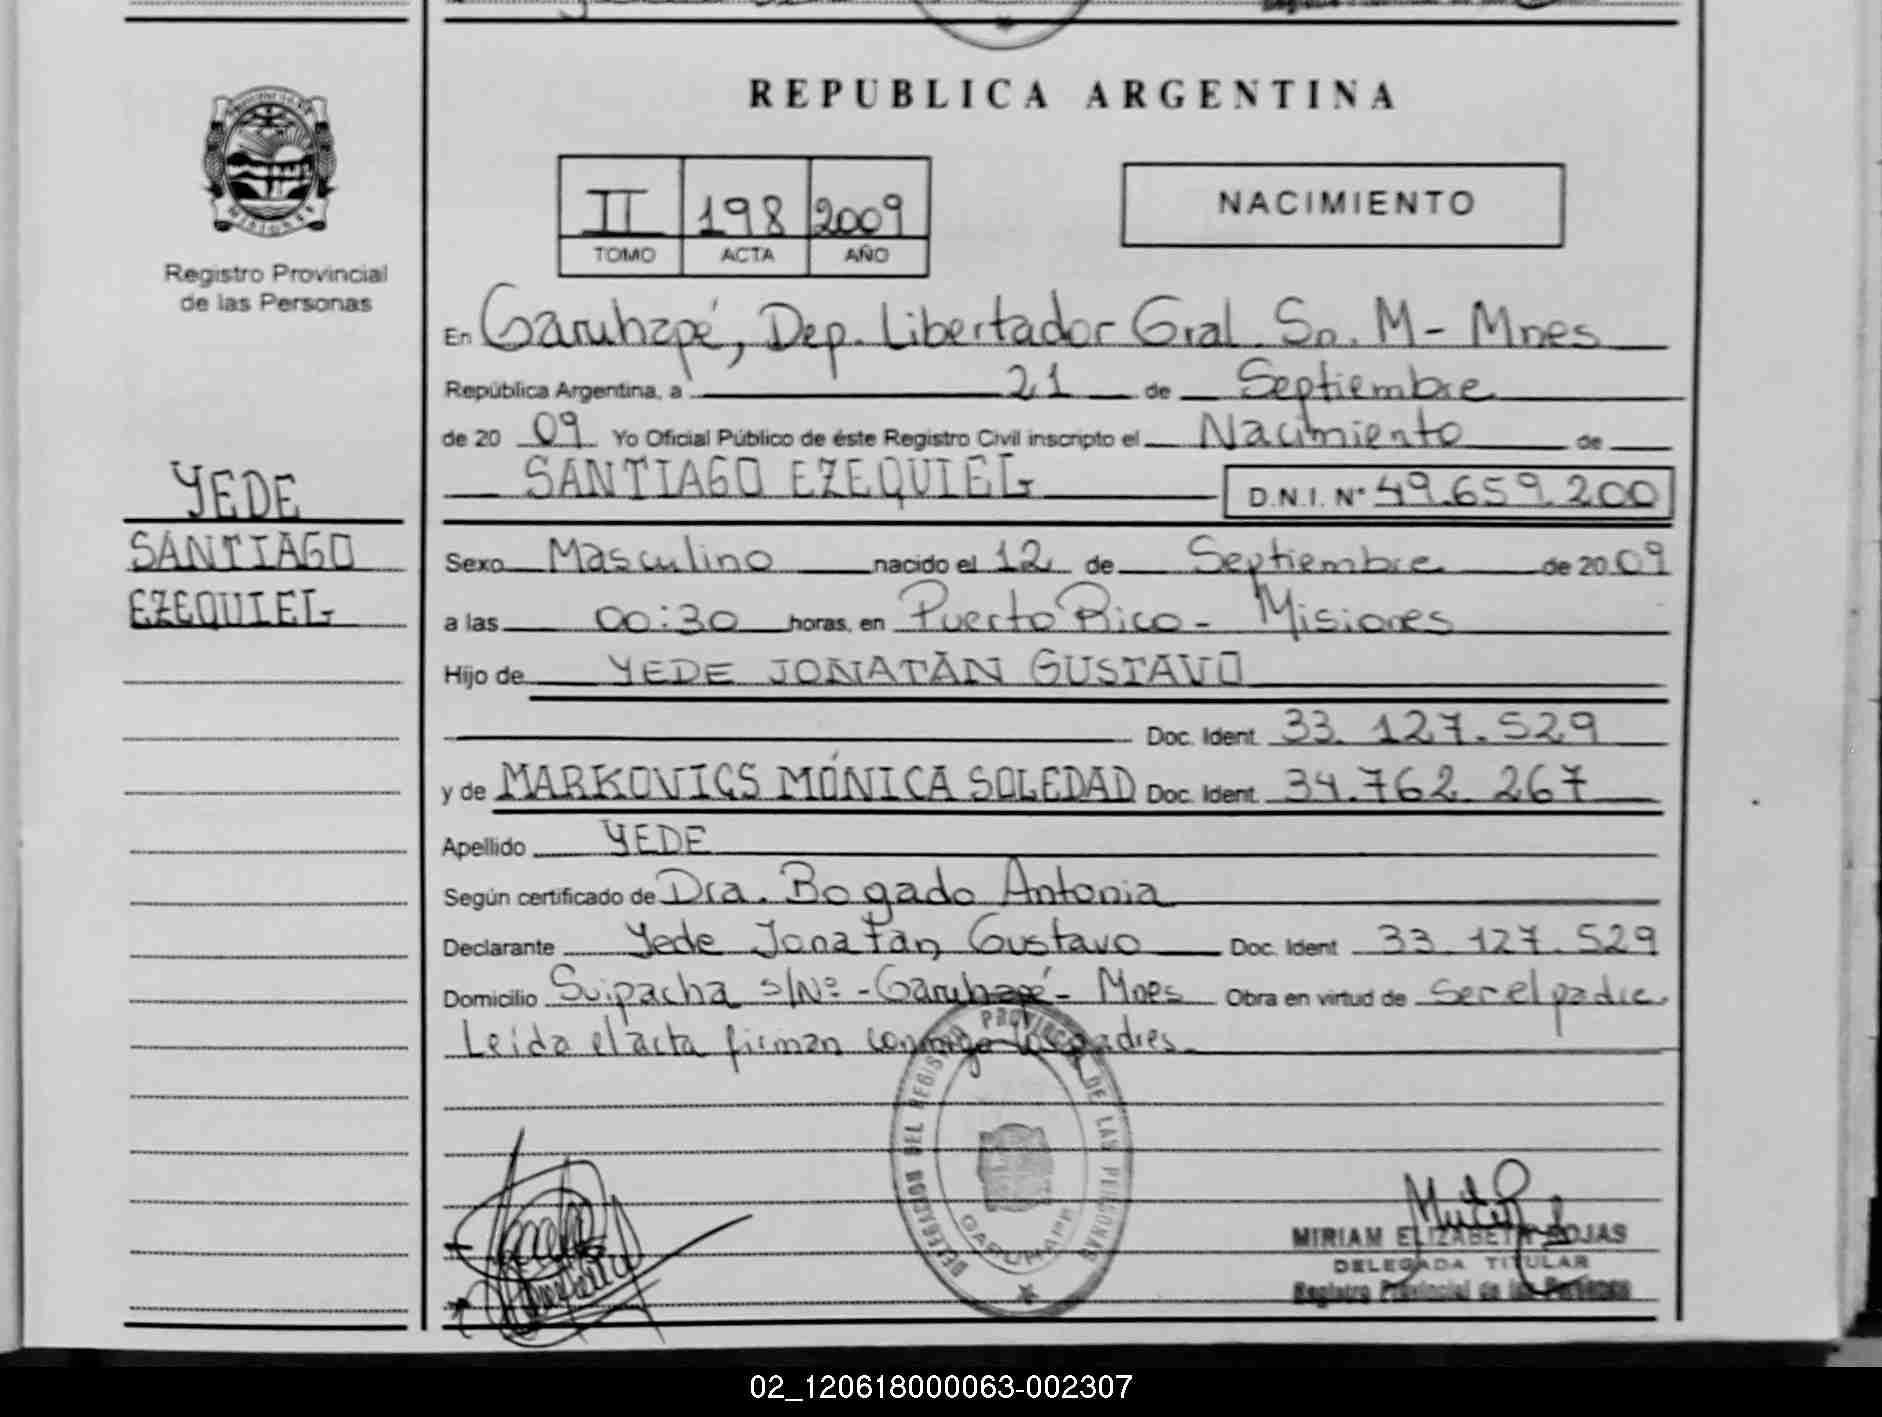 REPUBLICA ARGENTINA
MISIONES
Registro Provincial
de las Personas
II 198 2009
TOMO ACTA AÑO
NACIMIENTO
En Garuhapé, Dep. Libertador Gral. Sn. M - Mnes
República Argentina, a 21 de Septiembre
de 20 09 Yo Oficial Público de éste Registro Civil inscripto el Nacimiento de
SANTIAGO EZEQUIEL D.N.I. N° 49.659.200
YEDE
SANTIAGO
EZEQUIEL
Sexo Masculino nacido el 12 de Septiembre de 20 09
a las 00:30 horas, en Puerto Rico - Misiones
Hijo de YEDE JONATAN GUSTAVO
Doc. Ident. 33.127.529
y de MARKOVICS MÓNICA SOLEDAD Doc. Ident. 34.762.267
Apellido YEDE
Según certificado de Dra. Bogado Antonia
Declarante Yede Jonatan Gustavo Doc. Ident 33.127.529
Domicilio Suipacha s/Nº - Garuhapé - Mnes Obra en virtud de ser el padre.
Leída el acta firman conmigo los padres.
DELEGACION DEL REGISTRO PROVINCIAL DE LAS PERSONAS
GARUHAPE
MIRIAM ELIZABETH ROJAS
DELEGADA TITULAR
Registro Provincial de las Personas
02_120618000063-002307